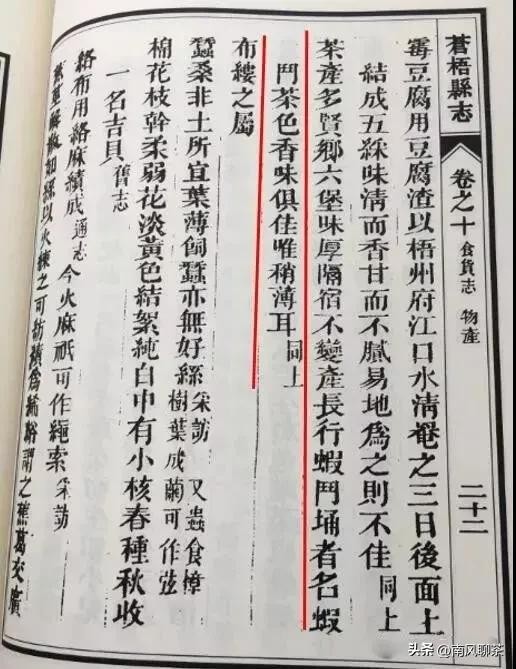 蒼梧縣志
卷之十 食貨志 物產
二十二
霉豆腐用豆腐渣以梧州府江口水清罨之三日後面上
結成五綵味清而香甘而不膩易地爲之則不佳 同上
茶產多賢鄉六堡味厚隔宿不變產長行蝦鬥埇者名蝦
鬥茶色香味俱佳唯稍薄耳 同上
布縷之屬
蠶桑非土所宜葉薄飼蠶亦無好絲 采訪 又蟲食樟
樹葉成繭可作弦
棉花枝幹柔弱花淡黃色結絮純白中有小核春種秋收
一名吉貝 舊志
絡布用絡麻績成 通志 今火麻祇可作繩索 采訪
莖解散如絲以火練之可紡績爲絺綌謂之蕉葛交廣
头条 @南风聊茶